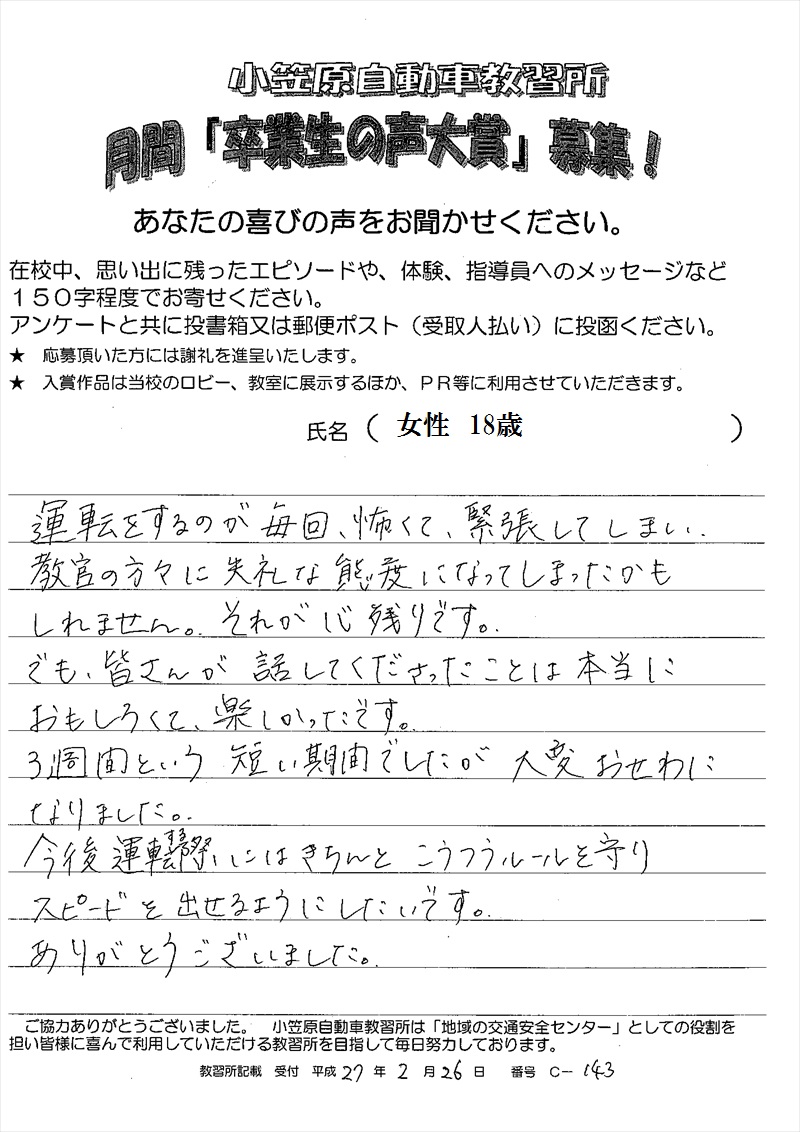 小笠原自動車教習所
月間「卒業生の声大賞」募集！
あなたの喜びの声をお聞かせください。
在校中、思い出に残ったエピソードや、体験、指導員へのメッセージなど
１５０字程度でお寄せください。
アンケートと共に投書箱又は郵便ポスト（受取人払い）に投函ください。
★　応募頂いた方には謝礼を進呈いたします。
★　入賞作品は当校のロビー、教室に展示するほか、ＰＲ等に利用させていただきます。
氏名（　女性　18歳　）
運転をするのが毎回、怖くて、緊張してしまい、
教官の方々に失礼な態度になってしまったかも
しれません。それが心残りです。
でも、皆さんが話してくださったことは本当に
おもしろくて、楽しかったです。
3週間という短い期間でしたが大変おせわに
なりました。
今後運転する際にはきちんとこうつうルールを守り
スピードを出せるようにしたいです。
ありがとうございました。
ご協力ありがとうございました。　小笠原自動車教習所は「地域の交通安全センター」としての役割を
担い皆様に喜んで利用していただける教習所を目指して毎日努力しております。
教習所記載　受付　平成27年2月26日　番号　Ｃー143